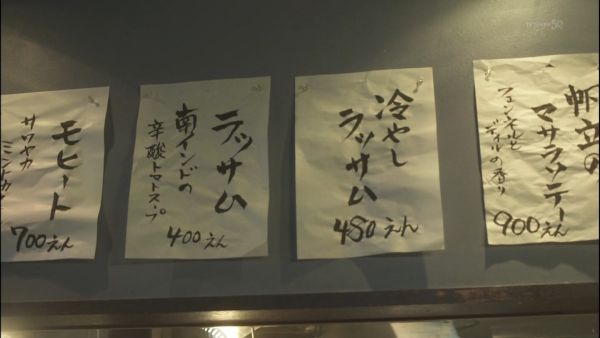 帆立の
マサラソテー
フェンネルと
ディルの香り
900えん
冷やし
ラッサム
480えん
ラッサム
南インドの
辛酸トマトスープ
400えん
モヒート
サワヤカ
700えん